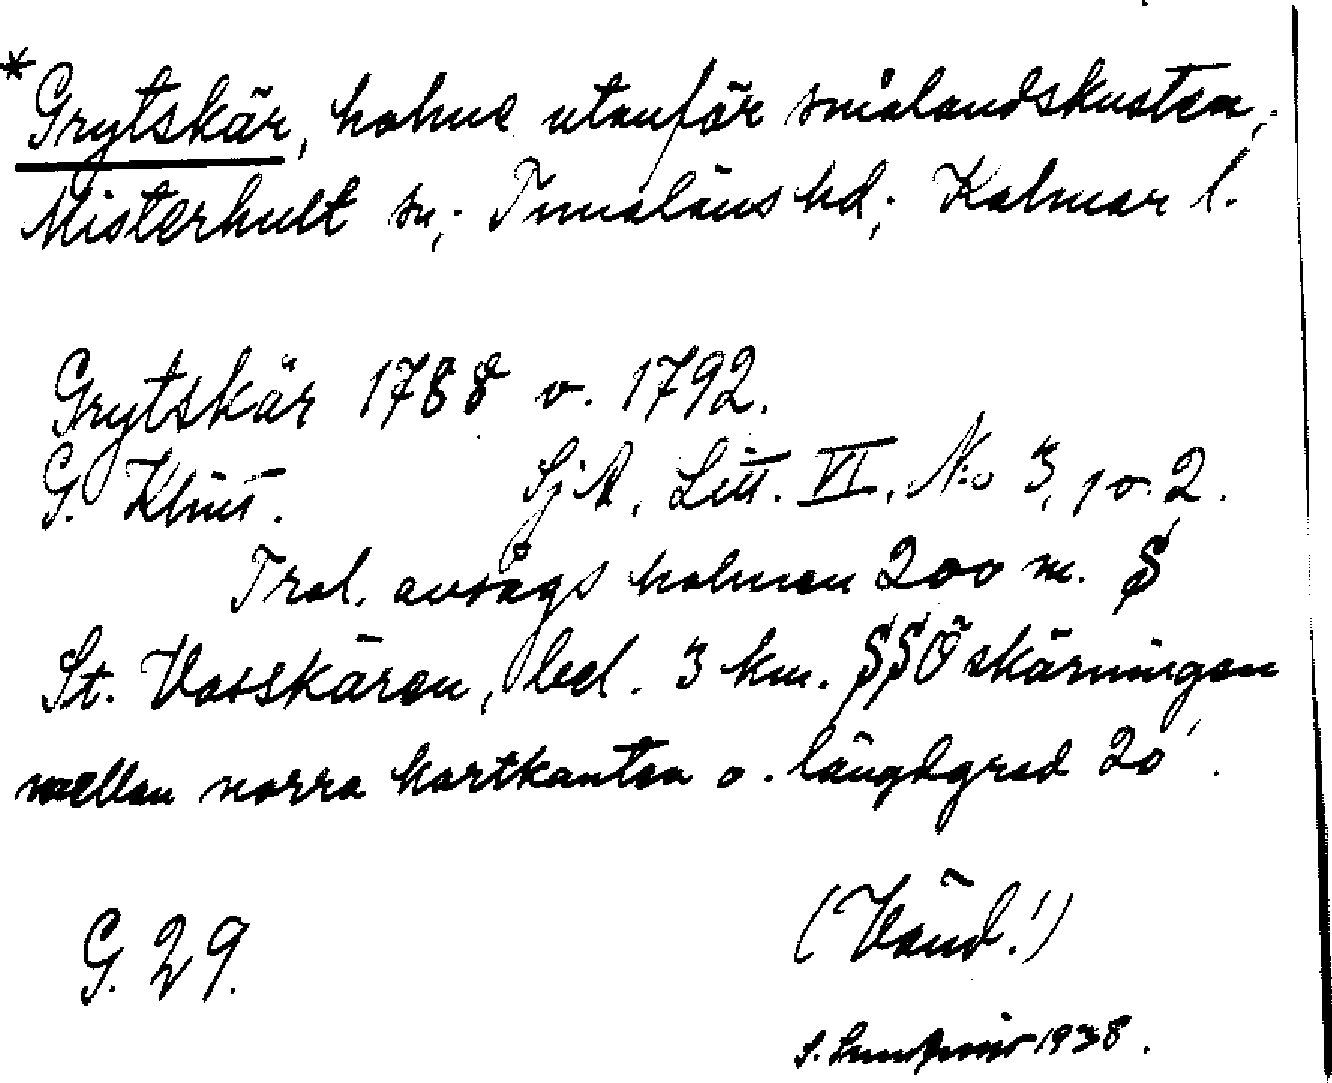 *Grytskär, holme utanför smålandskusten,
Misterhult sn; Tunaläns hd; Kalmar l.
Grytskär 1788 o. 1792.
G. Klint. SjA, Litt. VI, No 3, 1 o. 2.
Trol. avsågs holmen 200 m. S
St. Vasskären, bel. 3 km. SSÖ skärningen
mellan norra kartkanten o. längdgrad 20'.
G. 29. (Vänd!)
S. 1938.